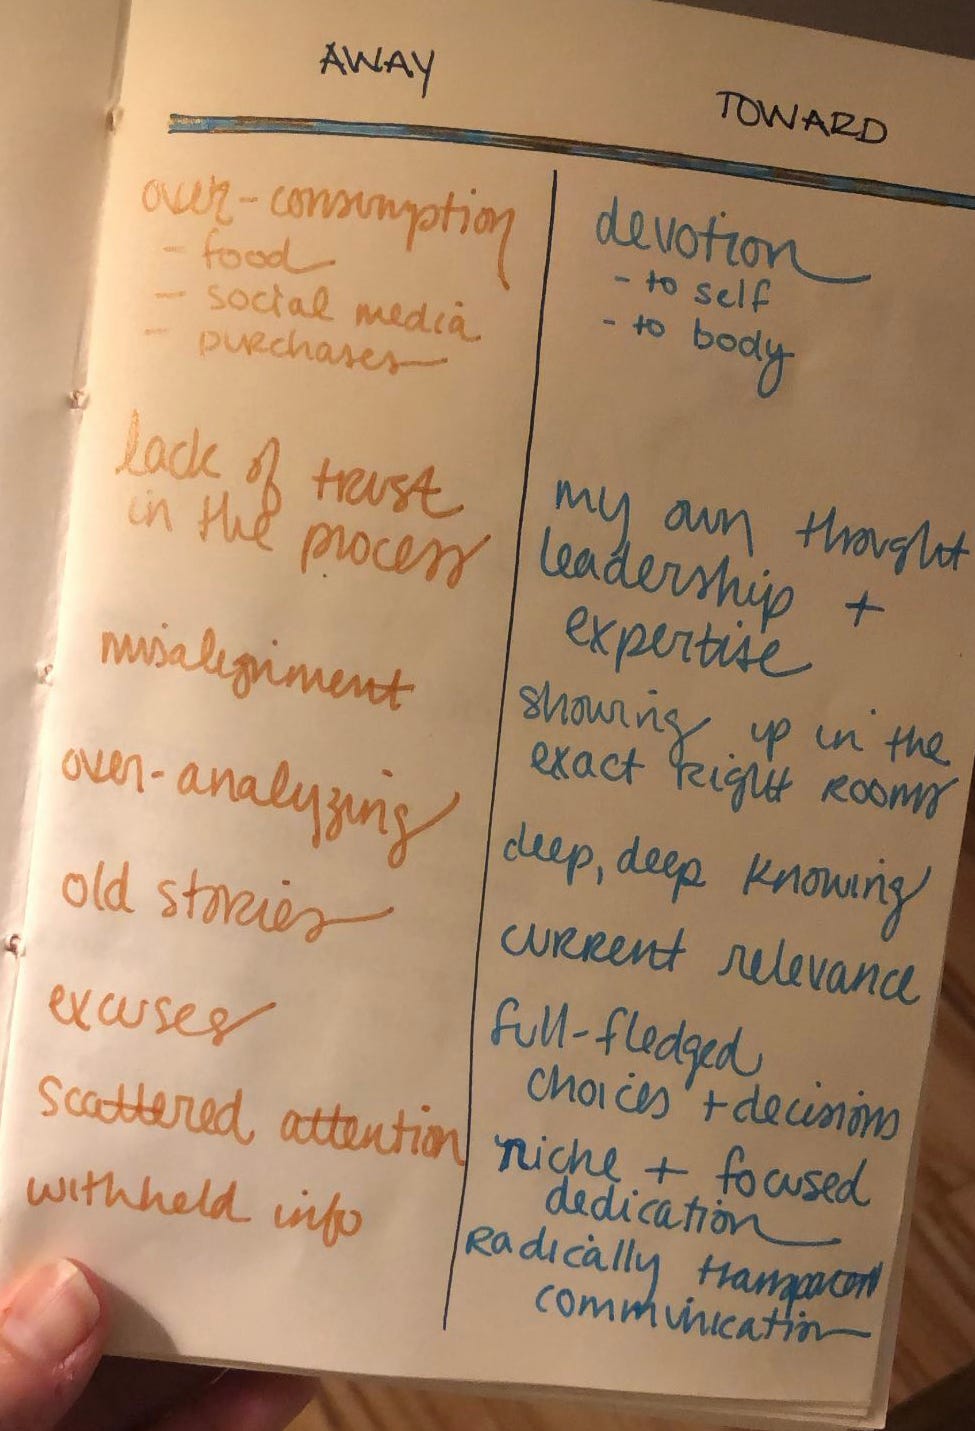 AWAY
TOWARD
over-consumption
- food
- social media
- purchases
lack of trust
in the process
misalignment
over-analyzing
old stories
excuses
scattered attention
withheld info
devotion
- to self
- to body
my own thought
leadership +
expertise
showing up in the
exact right rooms
deep, deep knowing
current relevance
full-fledged
choices + decisions
niche + focused
dedication
Radically transparent
communication